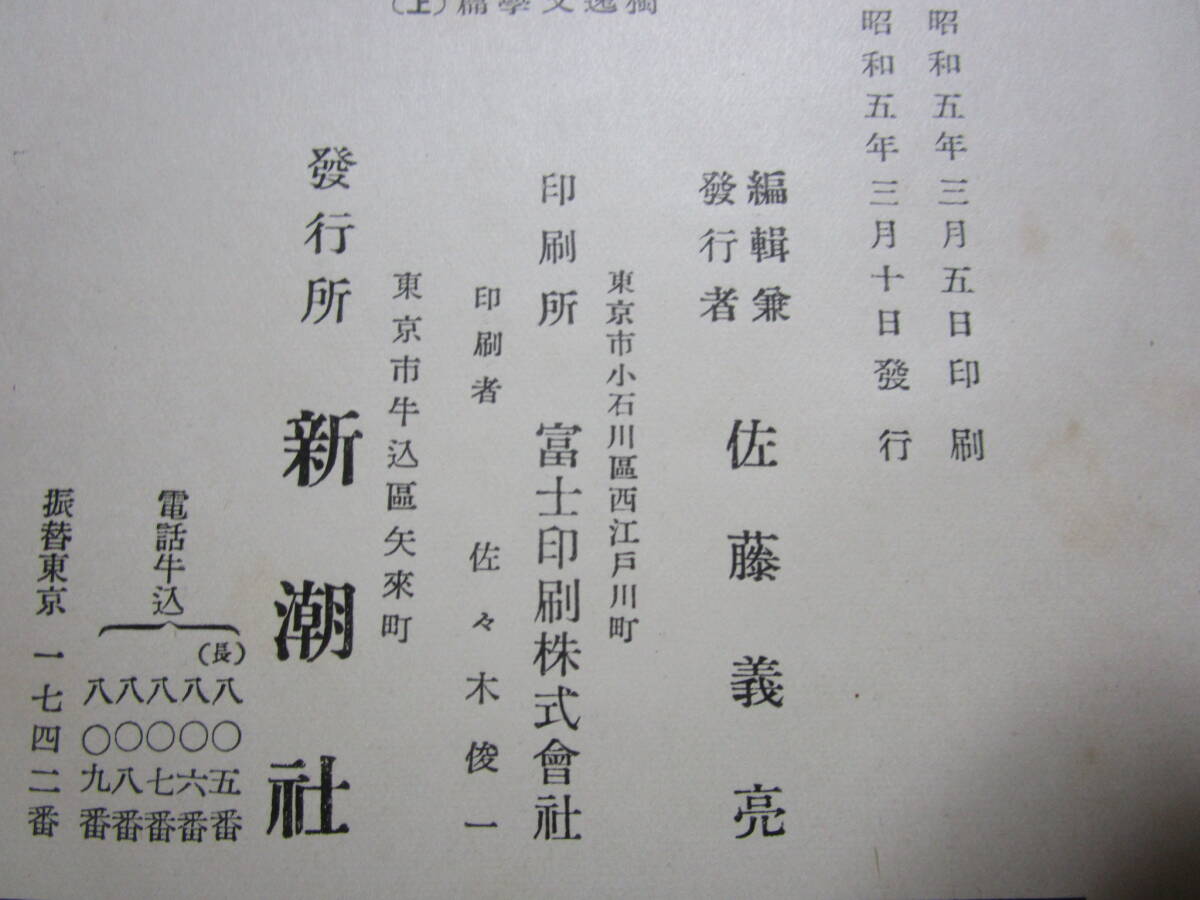 獨逸文學篇(上)
昭和五年三月五日印刷
昭和五年三月十日發行
編輯兼
發行者 佐藤義亮
東京市小石川區西江戸川町
印刷所 富士印刷株式會社
印刷者 佐々木俊一
東京市牛込區矢來町
發行所 新潮社
電話牛込
(長)八〇五番
八〇六番
八〇七番
八〇八番
八〇九番
振替東京一七四二番